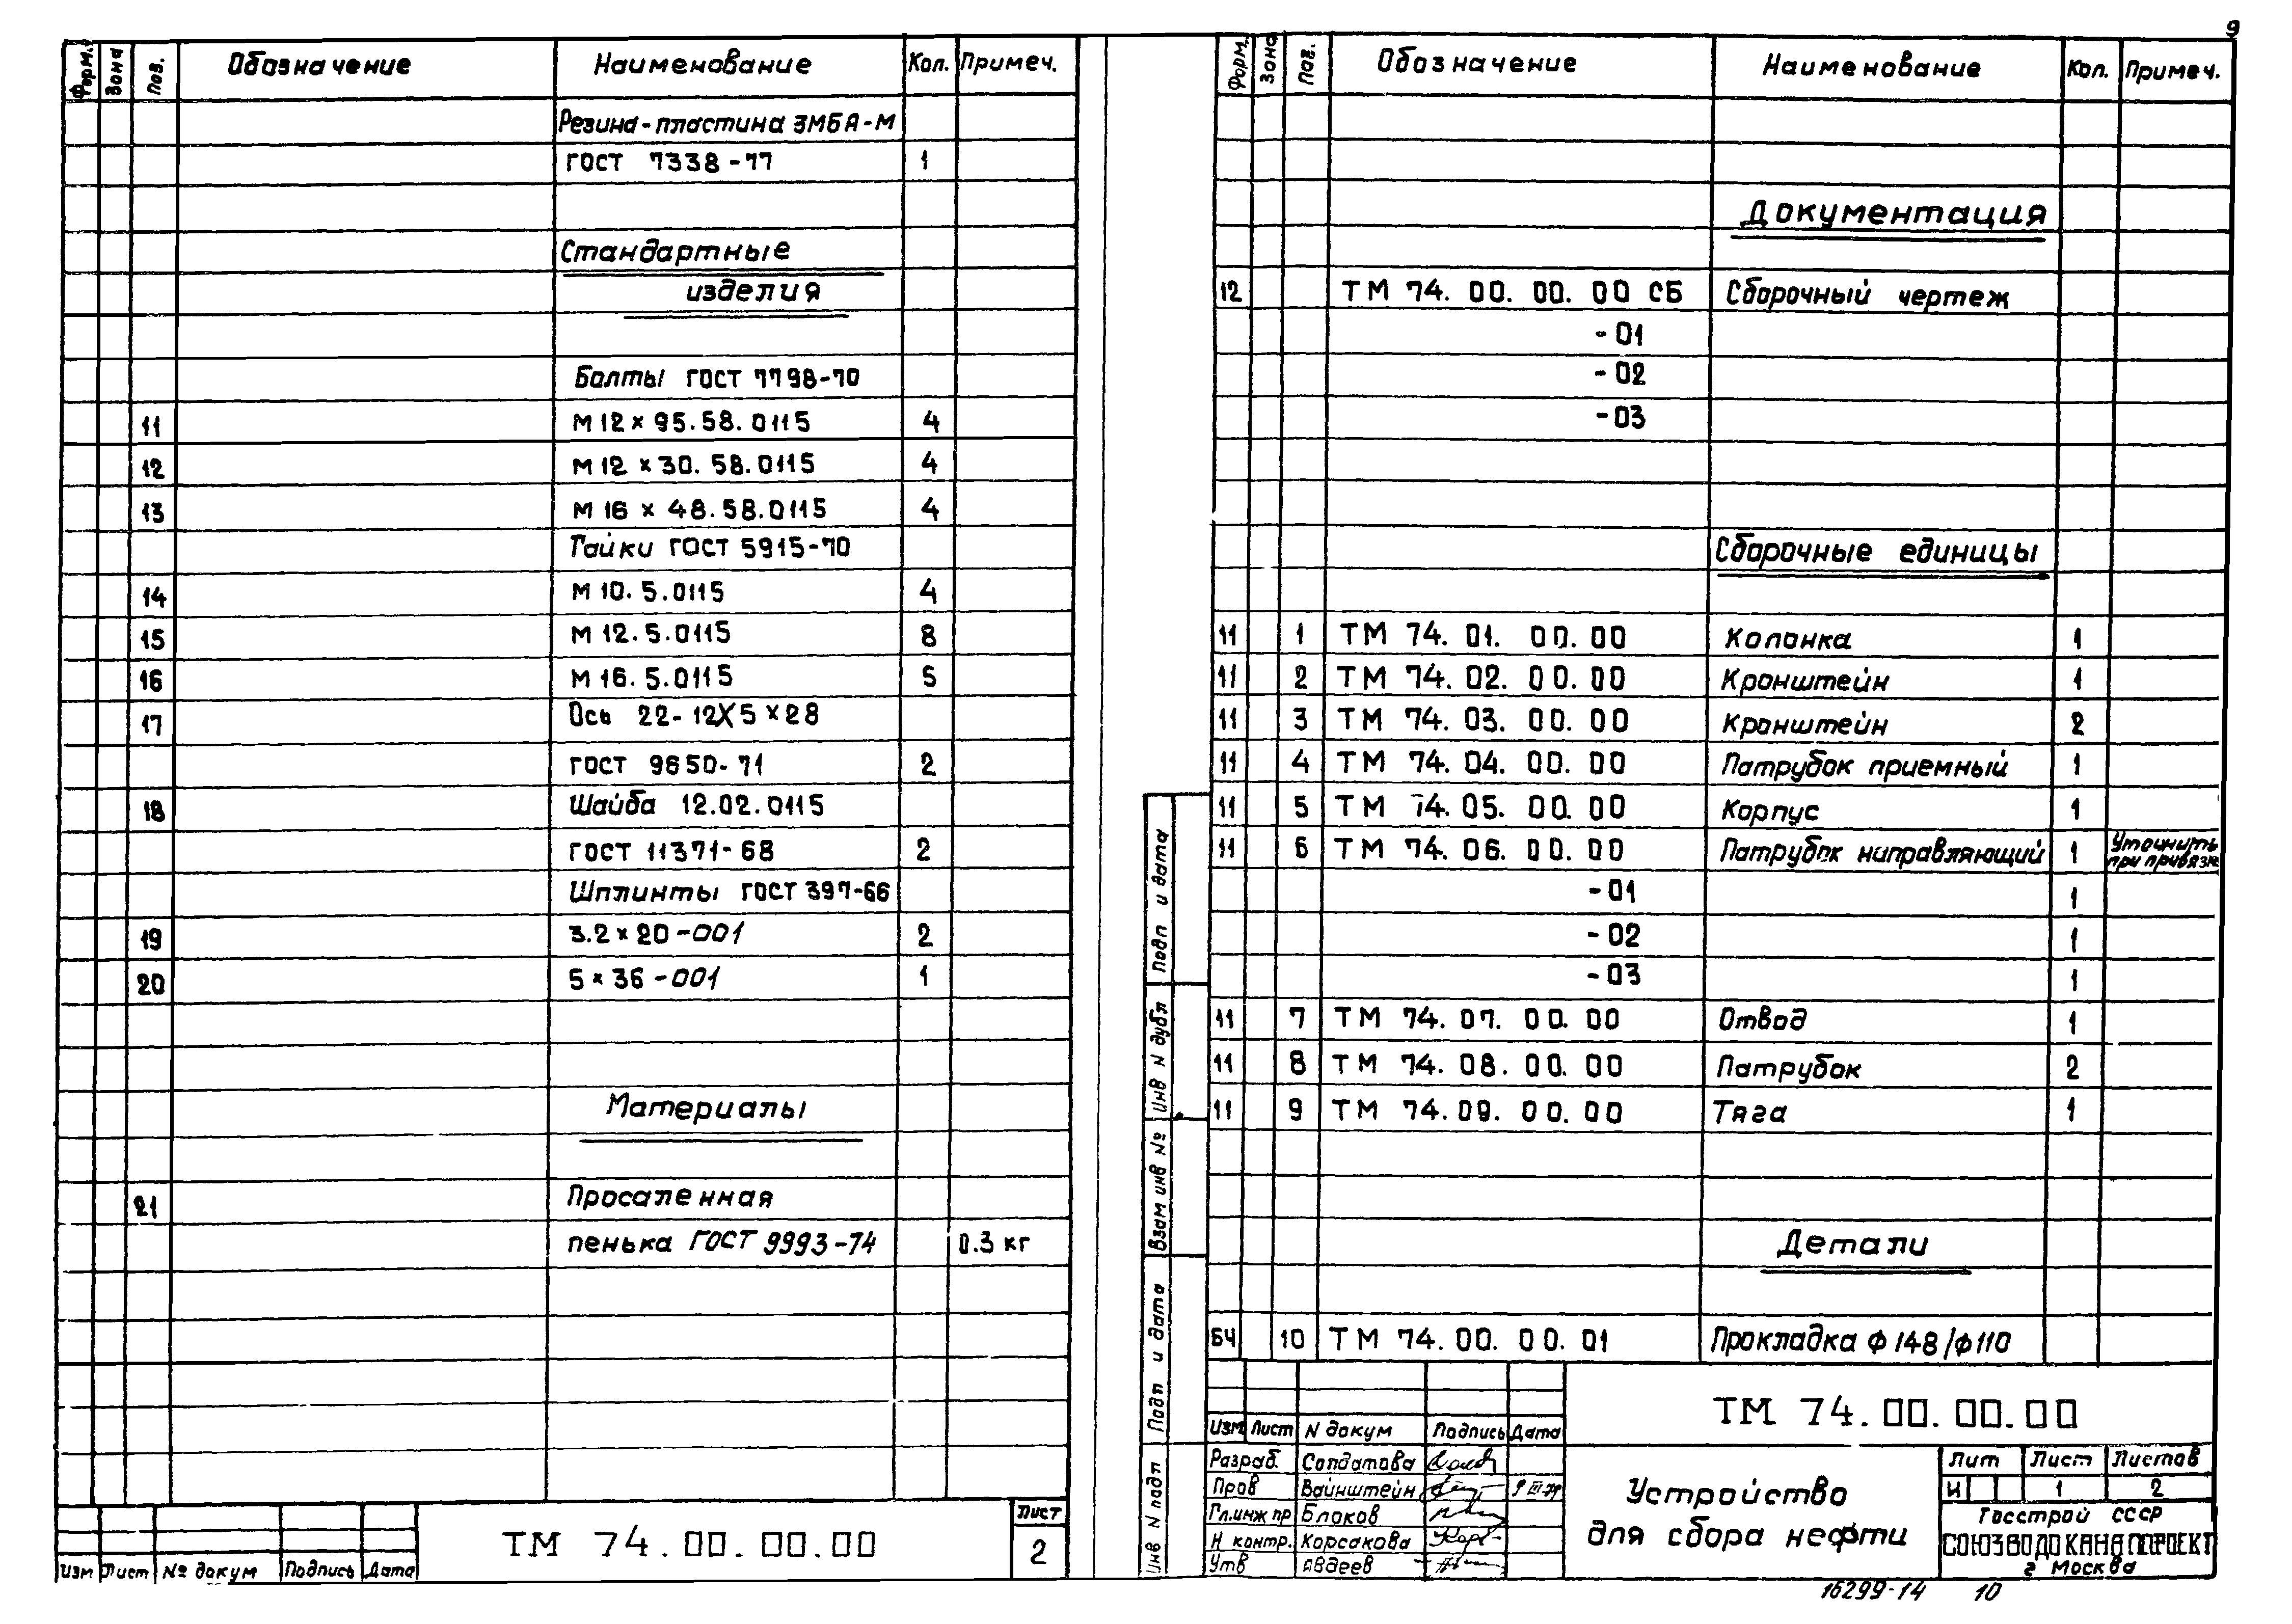 9
Форм. Зона Поз. Обозначение Наименование Кол. Примеч.
Резина-пластина 3МБА-М
ГОСТ 7338-77 1
Стандартные
изделия
Болты ГОСТ 7798-70
11 М12×95.58.0115 4
12 М12×30.58.0115 4
13 М16×48.58.0115 4
Гайки ГОСТ 5915-70
14 М10.5.0115 4
15 М12.5.0115 8
16 М16.5.0115 5
17 Ось 22-12Х5×28
ГОСТ 9650-71 2
18 Шайба 12.02.0115
ГОСТ 11371-68 2
Шплинты ГОСТ 397-66
19 3.2×20-001 2
20 5×36-001 1
Материалы
21 Просаленная
пенька ГОСТ 9993-74 0.3 кг
Изм Лист № докум Подпись Дата
ТМ 74.00.00.00
Лист
2
Форм. Зона Поз. Обозначение Наименование Кол. Примеч.
Документация
12 ТМ 74.00.00.00 СБ Сборочный чертеж
-01
-02
-03
Сборочные единицы
11 1 ТМ 74.01.00.00 Колонка 1
11 2 ТМ 74.02.00.00 Кронштейн 1
11 3 ТМ 74.03.00.00 Кронштейн 2
11 4 ТМ 74.04.00.00 Патрубок приемный 1
11 5 ТМ 74.05.00.00 Корпус 1
11 6 ТМ 74.06.00.00 Патрубок направляющий 1 Уточнить при привязк
-01 1
-02 1
-03 1
11 7 ТМ 74.07.00.00 Отвод 1
11 8 ТМ 74.08.00.00 Патрубок 2
11 9 ТМ 74.09.00.00 Тяга 1
Детали
БЧ 10 ТМ 74.00.00.01 Прокладка ф148/ф110
Подп и дата
Инв N дубл
Взам инв №
Подп и дата
Инв N подл
Изм Лист N докум Подпись Дата
Разраб. Солдатова
Пров Вайнштейн 9 III-79
Гл.инж пр Блоков
Н контр. Корсакова
Утв Авдеев
ТМ 74.00.00.00
Устройство
для сбора нефти
Лит Лист Листов
И 1 2
Госстрой СССР
СОЮЗВОДОКАНАЛПРОЕКТ
г Москва
16299-14 10